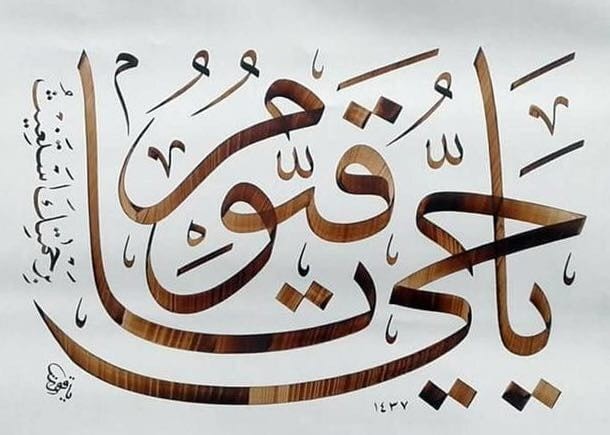 يَا حَيُّ يَا قَيُّومُ
بِرَحْمَتِكَ أَسْتَغِيثُ
١٤٣٧